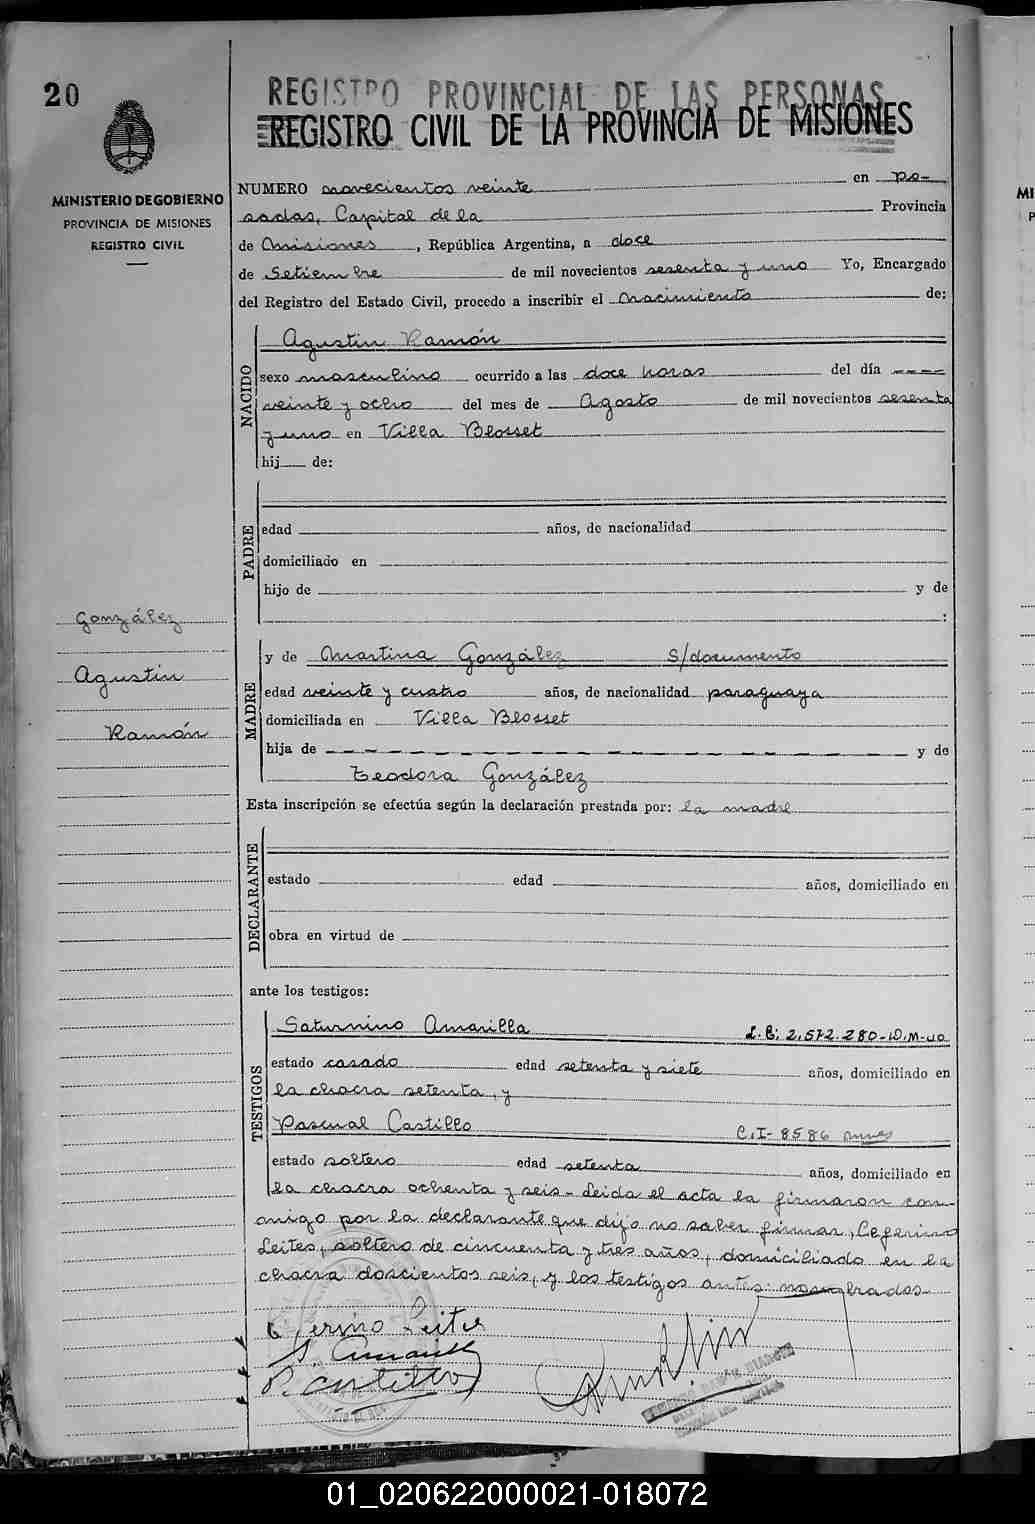 20
REGISTRO PROVINCIAL DE LAS PERSONAS
REGISTRO CIVIL DE LA PROVINCIA DE MISIONES
MINISTERIO DE GOBIERNO
PROVINCIA DE MISIONES
REGISTRO CIVIL
NUMERO novecientos veinte en Po-
sadas, Capital de la Provincia
de Misiones, República Argentina, a doce
de Setiembre de mil novecientos sesenta y uno Yo, Encargado
del Registro del Estado Civil, procedo a inscribir el nacimiento de:
NACIDO
Agustin Ramón
sexo masculino ocurrido a las doce horas del día ----
veinte y ocho del mes de Agosto de mil novecientos sesenta
y uno en Villa Blosset
hij de:
PADRE
edad años, de nacionalidad
domiciliado en
hijo de y de
:
González
Agustin
Ramón
MADRE
y de Martina González S/documento
edad veinte y cuatro años, de nacionalidad paraguaya
domiciliada en Villa Blosset
hija de - - - - - - - - - - - - - - - - y de
Teodora González
Esta inscripción se efectúa según la declaración prestada por: la madre
DECLARANTE
estado edad años, domiciliado en
obra en virtud de
ante los testigos:
TESTIGOS
Saturnino Amarilla L.E: 2.572.280-D.M-40
estado casado edad setenta y siete años, domiciliado en
la chacra setenta, y
Pascual Castillo C.I- 8586
estado soltero edad setenta años, domiciliado en
la chacra ochenta y seis- Leida el acta la firmaron con-
migo por la declarante que dijo no saber firmar, Ceferino
Leites, soltero de cincuenta y tres años, domiciliado en la
chacra doscientos seis, y los testigos antes nombrados-
Ceferino Leites
S. Amarilla
P. Castillo
01_020622000021-018072